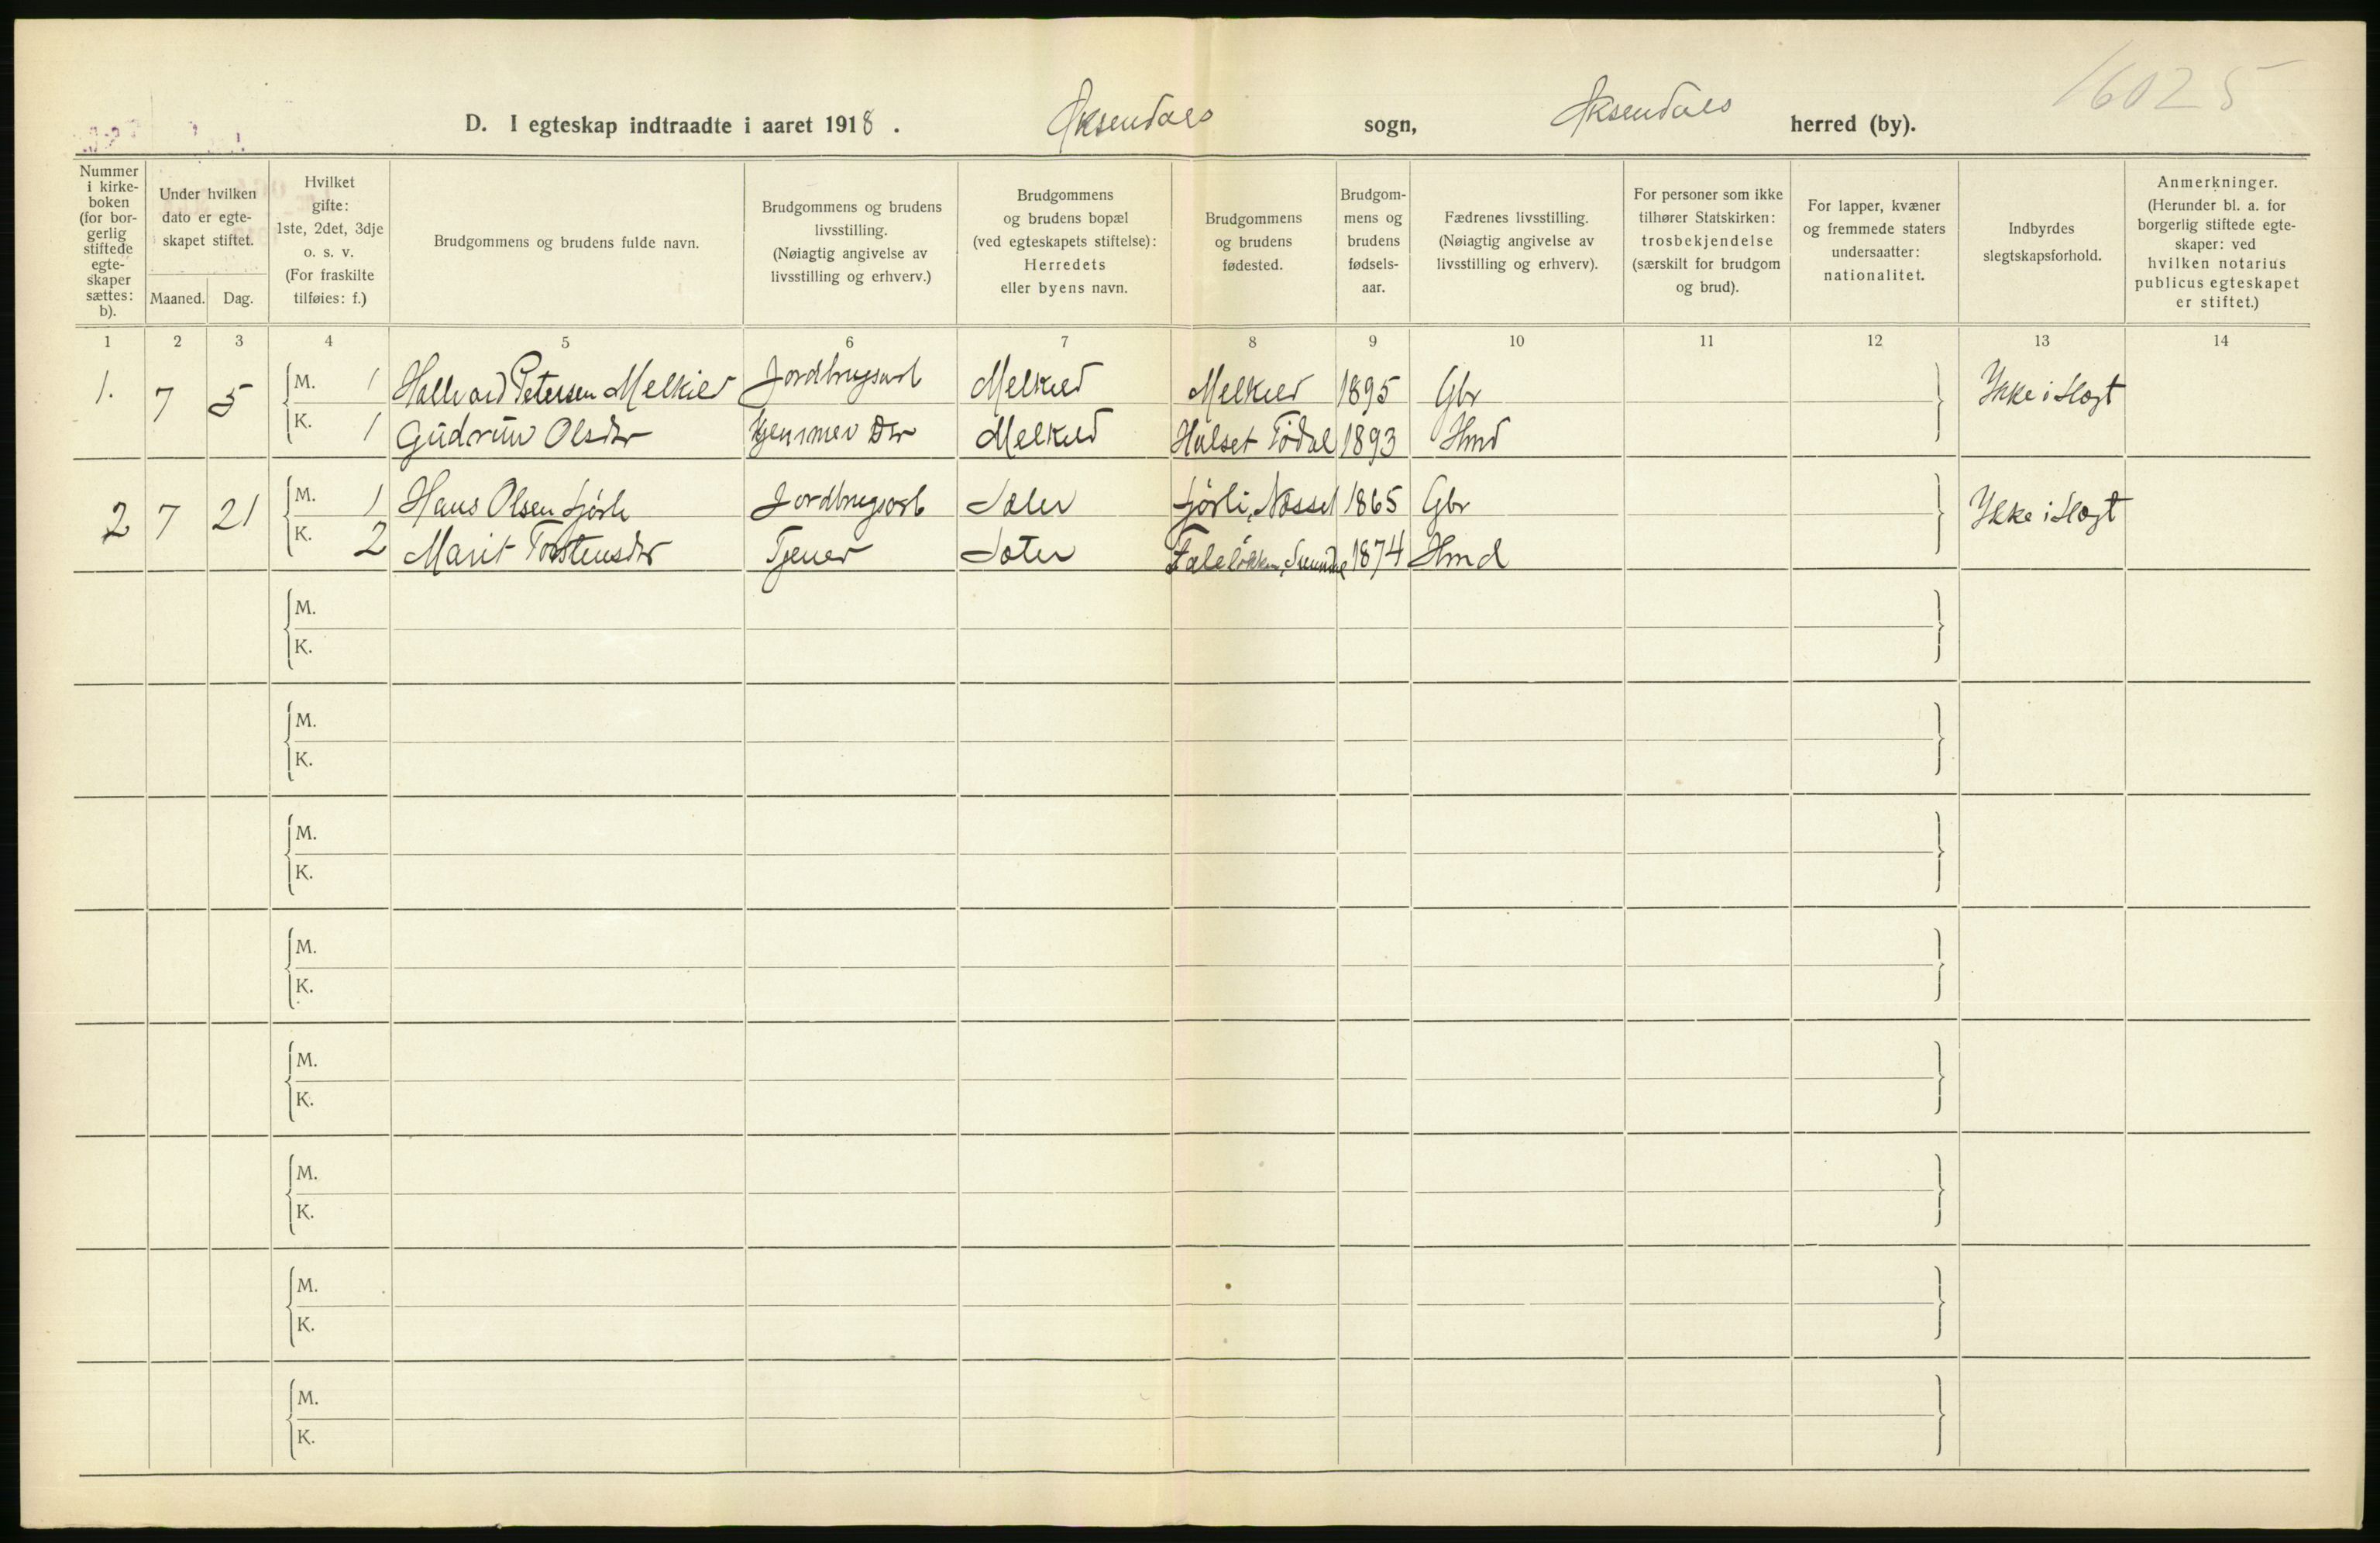 16025
D. I egteskap indtraadte i aaret 1918. Øksendals sogn, Øksendals herred (by).
Nummer i kirke- boken (for bor- gerlig stiftede egte- skaper sættes: b).
Under hvilken dato er egte- skapet stiftet.
Maaned. Dag.
Hvilket gifte: 1ste, 2det, 3dje o. s. v. (For fraskilte tilføies: f.)
Brudgommens og brudens fulde navn.
Brudgommens og brudens livsstilling. (Nøiagtig angivelse av livsstilling og erhverv.)
Brudgommens og brudens bopæl (ved egteskapets stiftelse): Herredets eller byens navn.
Brudgommens og brudens fødested.
Brudgom- mens og brudens fødsels- aar.
Fædrenes livsstilling. (Nøiagtig angivelse av livsstilling og erhverv).
For personer som ikke tilhører Statskirken: trosbekjendelse (særskilt for brudgom og brud).
For lapper, kvæner og fremmede staters undersaatter: nationalitet.
Indbyrdes slegtskapsforhold.
Anmerkninger. (Herunder bl. a. for borgerlig stiftede egte- skaper: ved hvilken notarius publicus egteskapet er stiftet.)
1 2 3 4 5 6 7 8 9 10 11 12 13 14
1. 7 5 M. 1 Hallvard Petersen Melkild Jordbrugsarb Melkild Melkild 1895 Gbr Ikke i slægt
K. 1 Gudrun Olsdtr Hjemmev Dtr Melkild Halset Tödal 1893 Hmd
2 7 21 M. 1 Hans Olsen Sjørli Jordbrugsarb Sæter Sjørli, Nesset 1865 Gbr Ikke i slægt
K. 2 Marit Torstensdtr Tjener Sæter 1874 Hmd
M.
K.
M.
K.
M.
K.
M.
K.
M.
K.
M.
K.
M.
K.
M.
K.